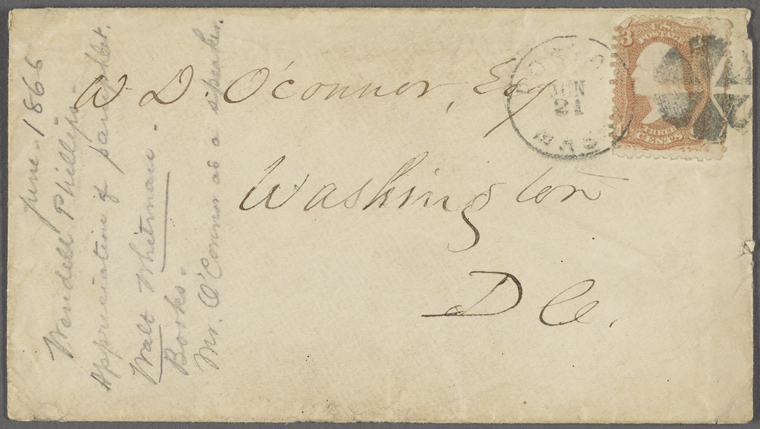 W. D. O'Connor, Esq
Washington
D C.
JUN
21
MASS
3 U.S. 3
POSTAGE
THREE
CENTS
June - 1866
Wendell Phillips -
Appreciation of pamphlet.
Walt Whitman -
Books -
Mr. O'Connor as a speaker.